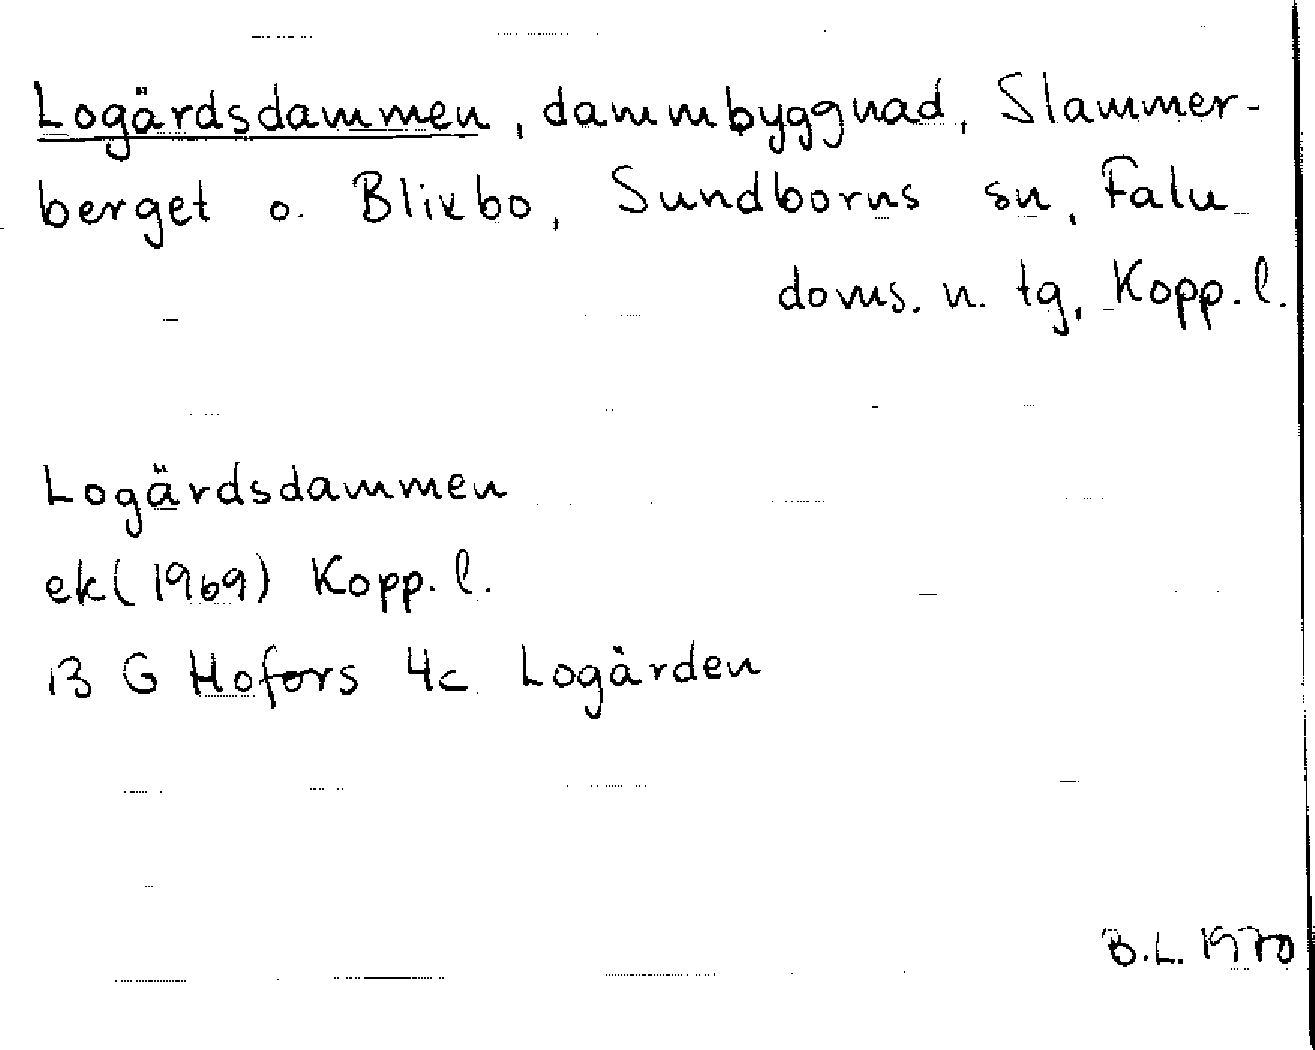 Logärdsdammen, dammbyggnad, Slammer-
berget o. Blixbo, Sundborns sn, Falu
doms. n. tg, Kopp. l.
Logärdsdammen
ek (1969) Kopp. l.
13 G Hofors 4c Logärden
B.L. 1970